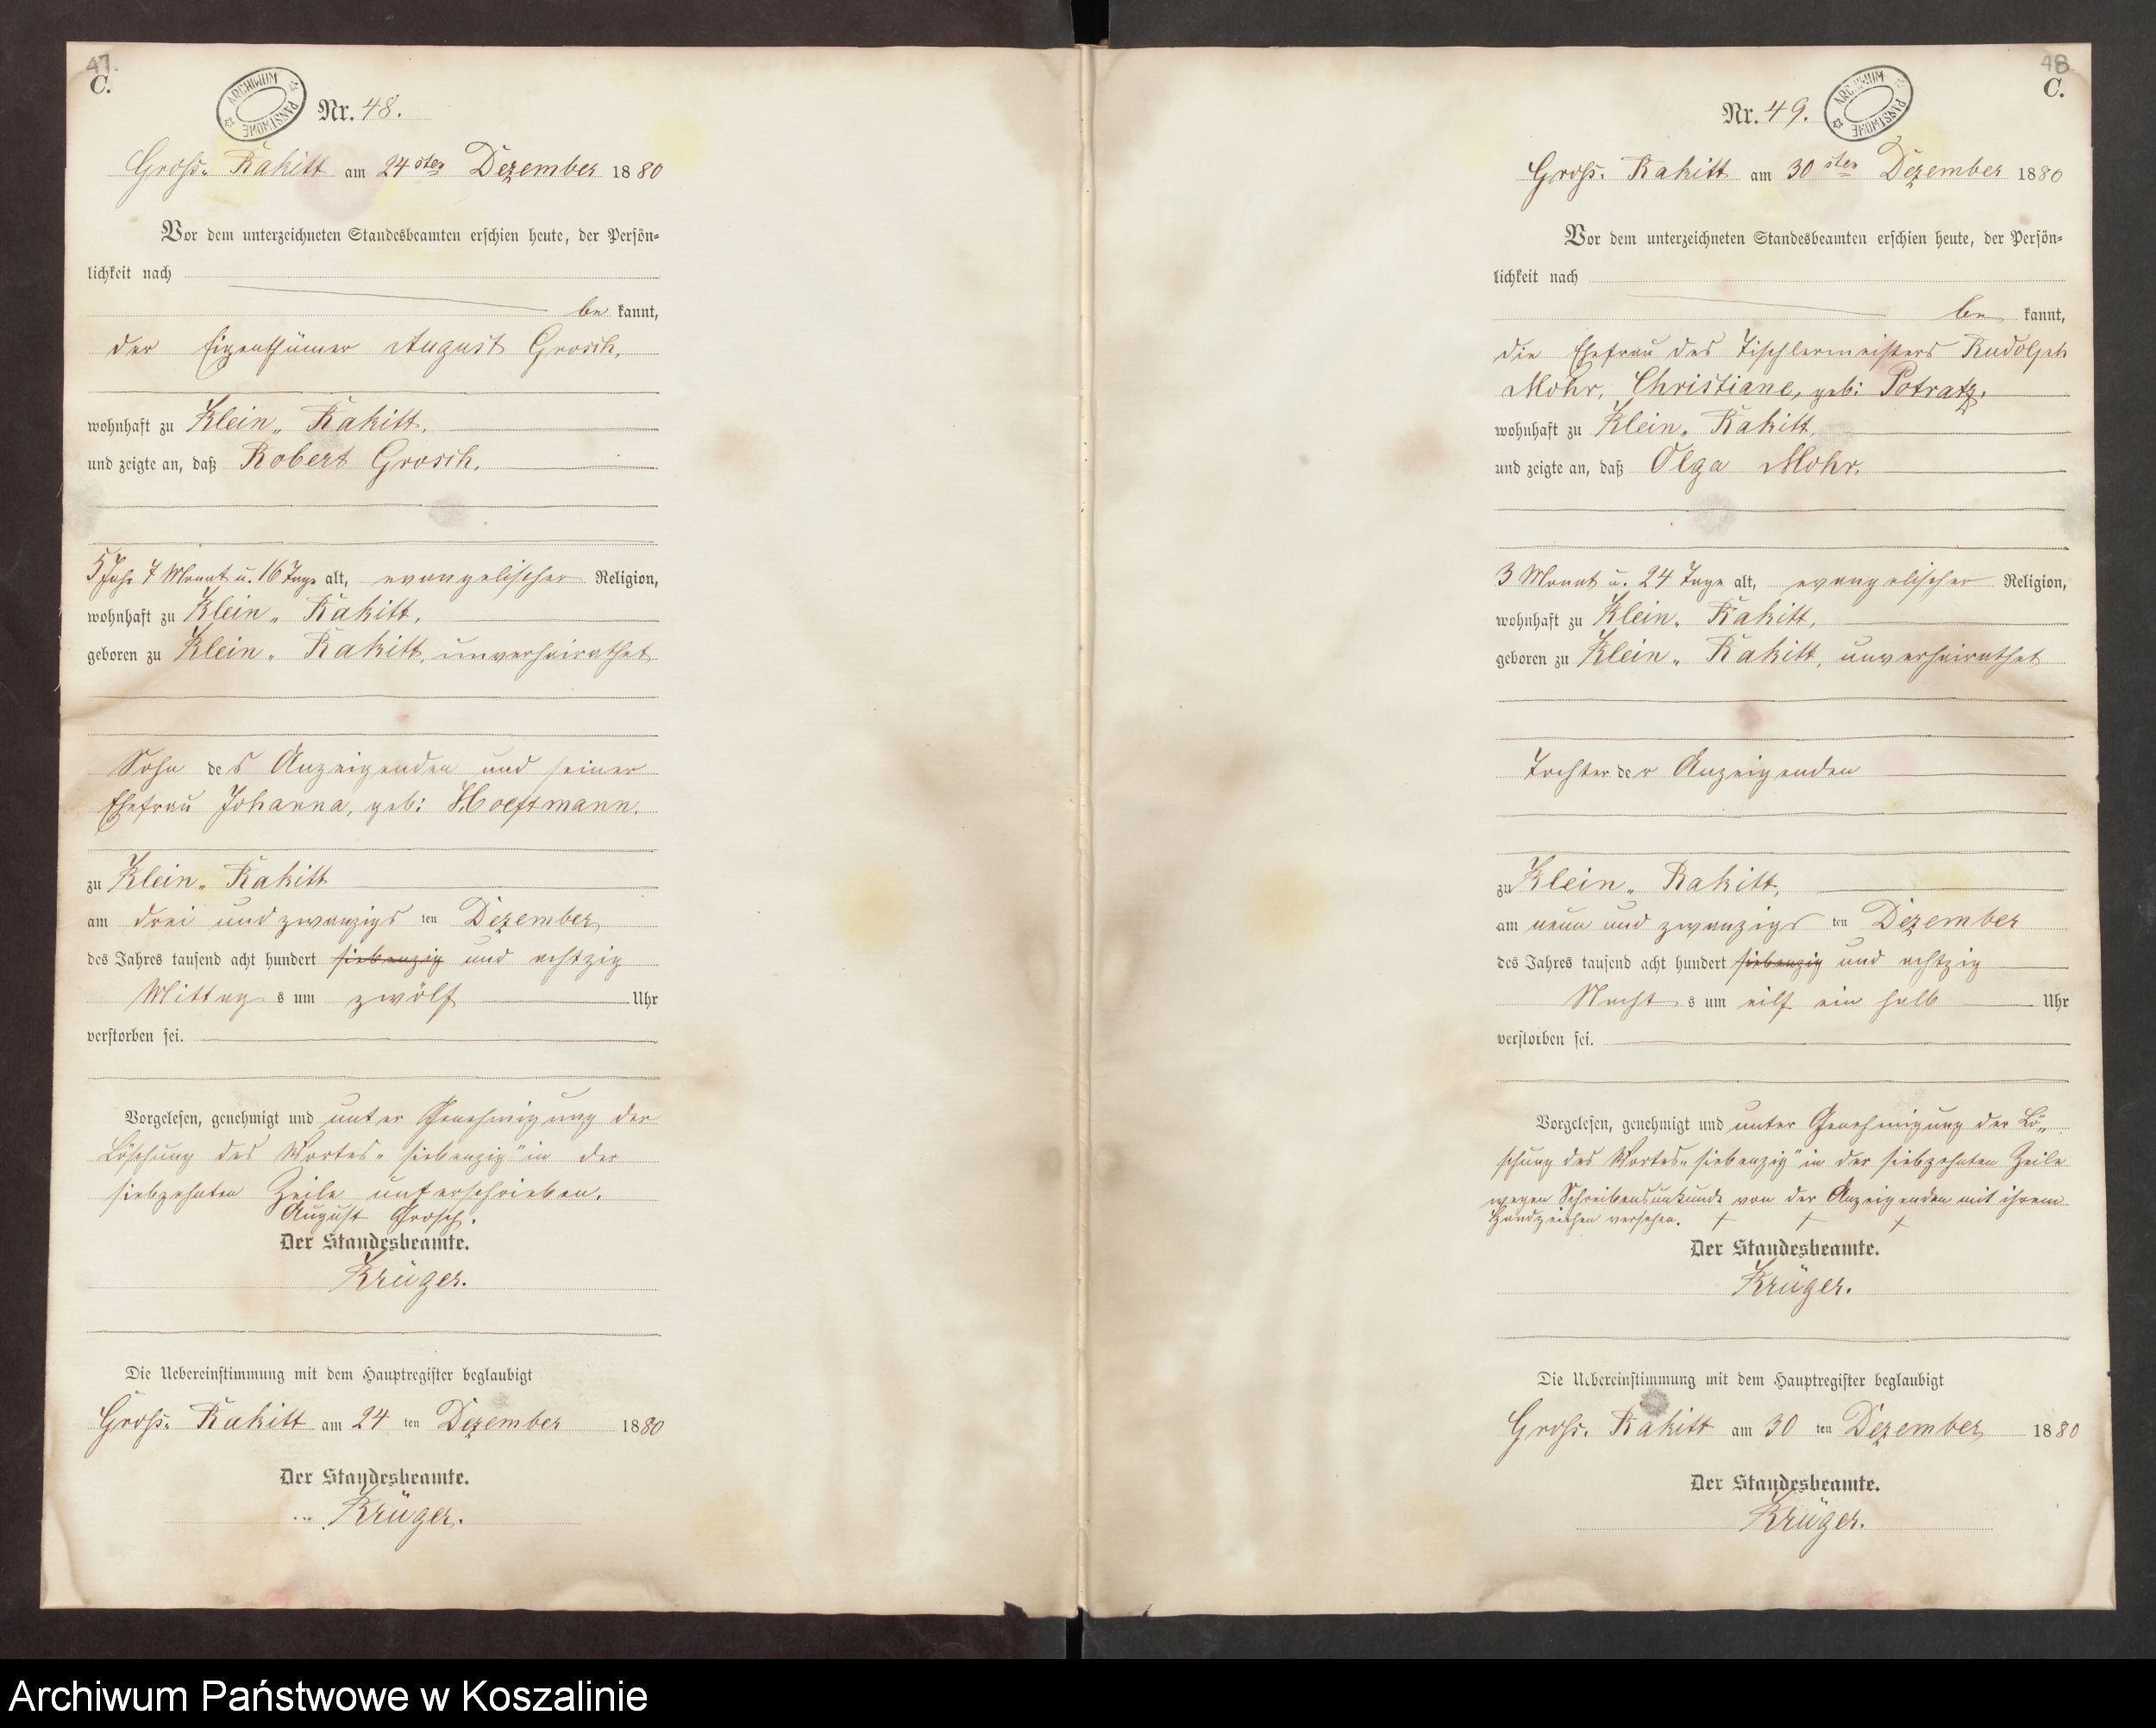 47.
C.
ARCHIWUM PAŃSTWOWE
Nr. 48.
Gross- Rakitt am 24sten Dezember 1880
Vor dem unterzeichneten Standesbeamten erschien heute, der Persön-
lichkeit nach
be kannt,
der Eigenthümer August Grosch,
wohnhaft zu Klein- Rakitt,
und zeigte an, daß Robert Grosch,
5 Jahr 7 Monat u. 16 Tage alt, evangelischer Religion,
wohnhaft zu Klein- Rakitt,
geboren zu Klein- Rakitt, unverheirathet
Sohn des Anzeigenden und seiner
Ehefrau Johanna, geb: Hoefsmann.
zu Klein- Rakitt
am drei und zwanzigs ten Dezember
des Jahres tausend acht hundert siebenzig und achtzig
Mittag s um zwölf Uhr
verstorben sei.
Vorgelesen, genehmigt und unter Genehmigung der
Löschung des Wortes „siebenzig" in der
siebzehnten Zeile unterschrieben.
August Grosch.
Der Standesbeamte.
Krüger.
Die Uebereinstimmung mit dem Hauptregister beglaubigt
Gross- Rakitt am 24 ten Dezember 1880
Der Standesbeamte.
Krüger.
48.
C.
Nr. 49.
ARCHIWUM PAŃSTWOWE
Gross- Rakitt am 30sten Dezember 1880
Vor dem unterzeichneten Standesbeamten erschien heute, der Persön-
lichkeit nach
be kannt,
die Ehefrau des Tischlermeisters Rudolph
Mohr, Christiane, geb: Potratz,
wohnhaft zu Klein- Rakitt,
und zeigte an, daß Olga Mohr,
3 Monat u. 24 Tage alt, evangelischer Religion,
wohnhaft zu Klein- Rakitt,
geboren zu Klein- Rakitt, unverheirathet
Tochter der Anzeigenden
zu Klein- Rakitt,
am neun und zwanzigs ten Dezember
des Jahres tausend acht hundert siebenzig und achtzig
Nacht s um eilf ein halb Uhr
verstorben sei.
Vorgelesen, genehmigt und unter Genehmigung der Lö-
schung des Wortes „siebenzig" in der siebzehnten Zeile
wegen Schreibensunkunde von der Anzeigenden mit ihrem
Handzeichen versehen. + + +
Der Standesbeamte.
Krüger.
Die Uebereinstimmung mit dem Hauptregister beglaubigt
Gross- Rakitt am 30 ten Dezember 1880
Der Standesbeamte.
Krüger.
Archiwum Państwowe w Koszalinie